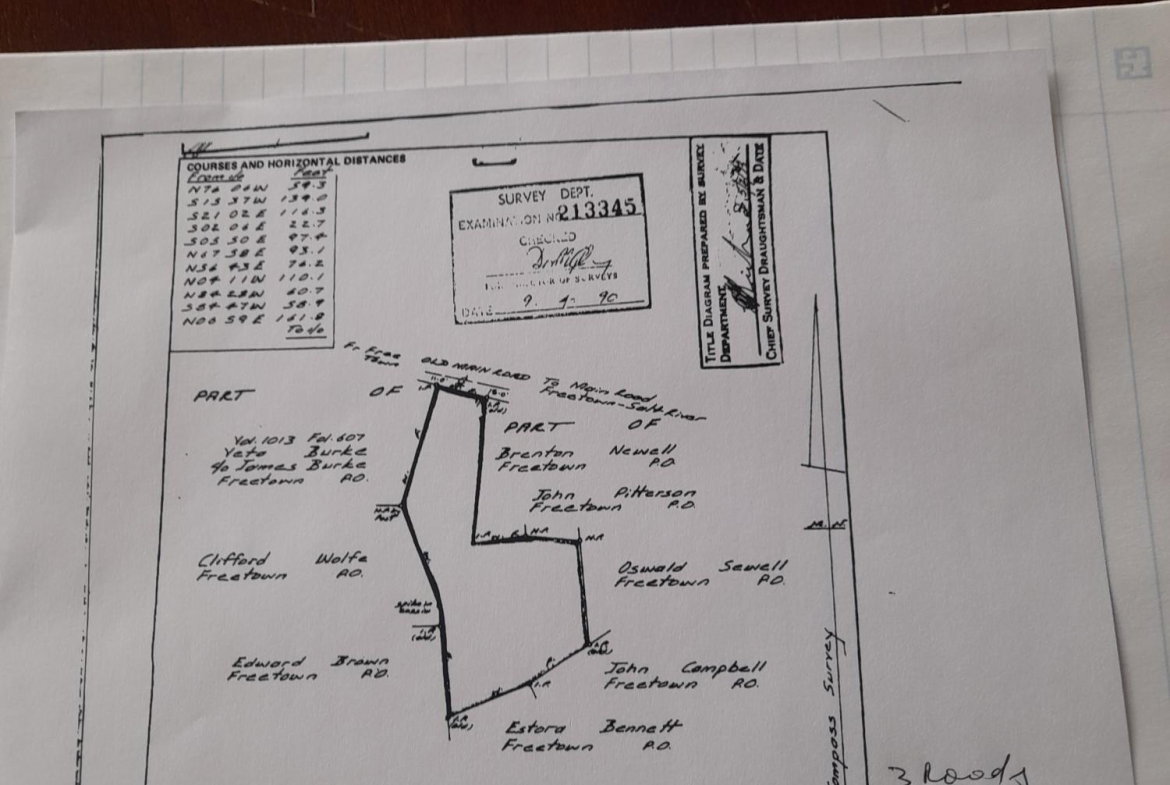 COURSES AND HORIZONTAL DISTANCES
From de Feet
N76 06W 59.3
S15 37W 139.0
S21 02E 116.3
S02 06E 22.7
S05 50E 97.4
N67 58E 93.1
N56 43E 76.2
N04 11W 110.1
N84 28W 60.7
S84 47W 58.9
N06 59E 161.8
To do
SURVEY DEPT.
EXAMINATION NO 213345
CHECKED
DIRECTOR OF SURVEYS
DATE 9. 4. 90
TITLE DIAGRAM PREPARED BY SURVEY
DEPARTMENT
CHIEF SURVEY DRAUGHTSMAN & DATE
Fr Free
Town
OLD MAIN ROAD To Main Road
Freetown-Salt River
PART OF
PART OF
Vol. 1013 Fol. 607
Yeta Burke
c/o James Burke
Freetown P.O.
Brenton Newell
Freetown P.O.
John Pitterson
Freetown P.O.
Clifford Wolfe
Freetown P.O.
Oswald Sewell
Freetown P.O.
Edward Brown
Freetown P.O.
John Campbell
Freetown P.O.
Estora Bennett
Freetown P.O.
M. N.
Compass Survey
3 Roods